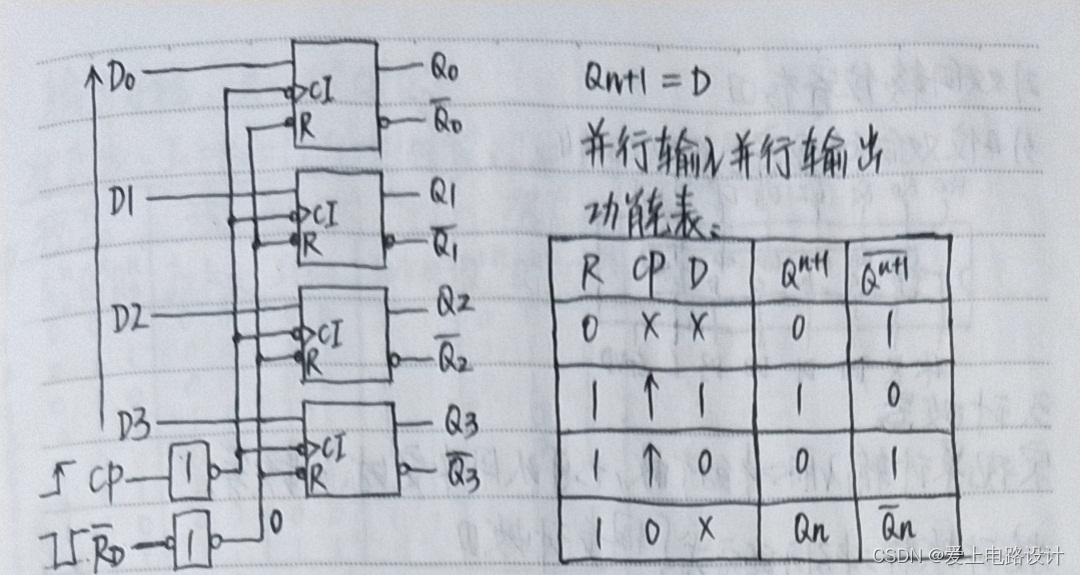 D0
CI
R
Q0
Q̅0
D1
CI
R
Q1
Q̅1
D2
CI
R
Q2
Q̅2
D3
CI
R
Q3
Q̅3
CP
1
R̅D
1
0
Qn+1 = D
并行输入并行输出
功能表:
R CP D Qⁿ⁺¹ Q̅ⁿ⁺¹
0 × × 0 1
1 ↑ 1 1 0
1 ↑ 0 0 1
1 0 × Qn Q̅n
CSDN @爱上电路设计